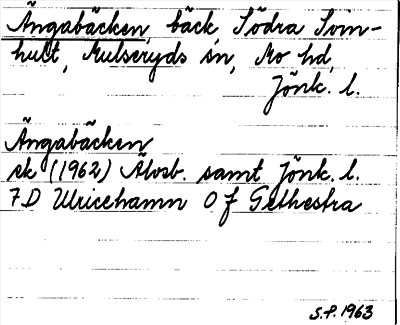 Ängabäcken, bäck, Södra Svin-
hult, Mulseryds sn, Mo hd,
Jönk. l.
Ängabäcken
ek (1962) Älvsb. samt Jönk. l.
7D Ulricehamn 0f Gethestra
S.P. 1963